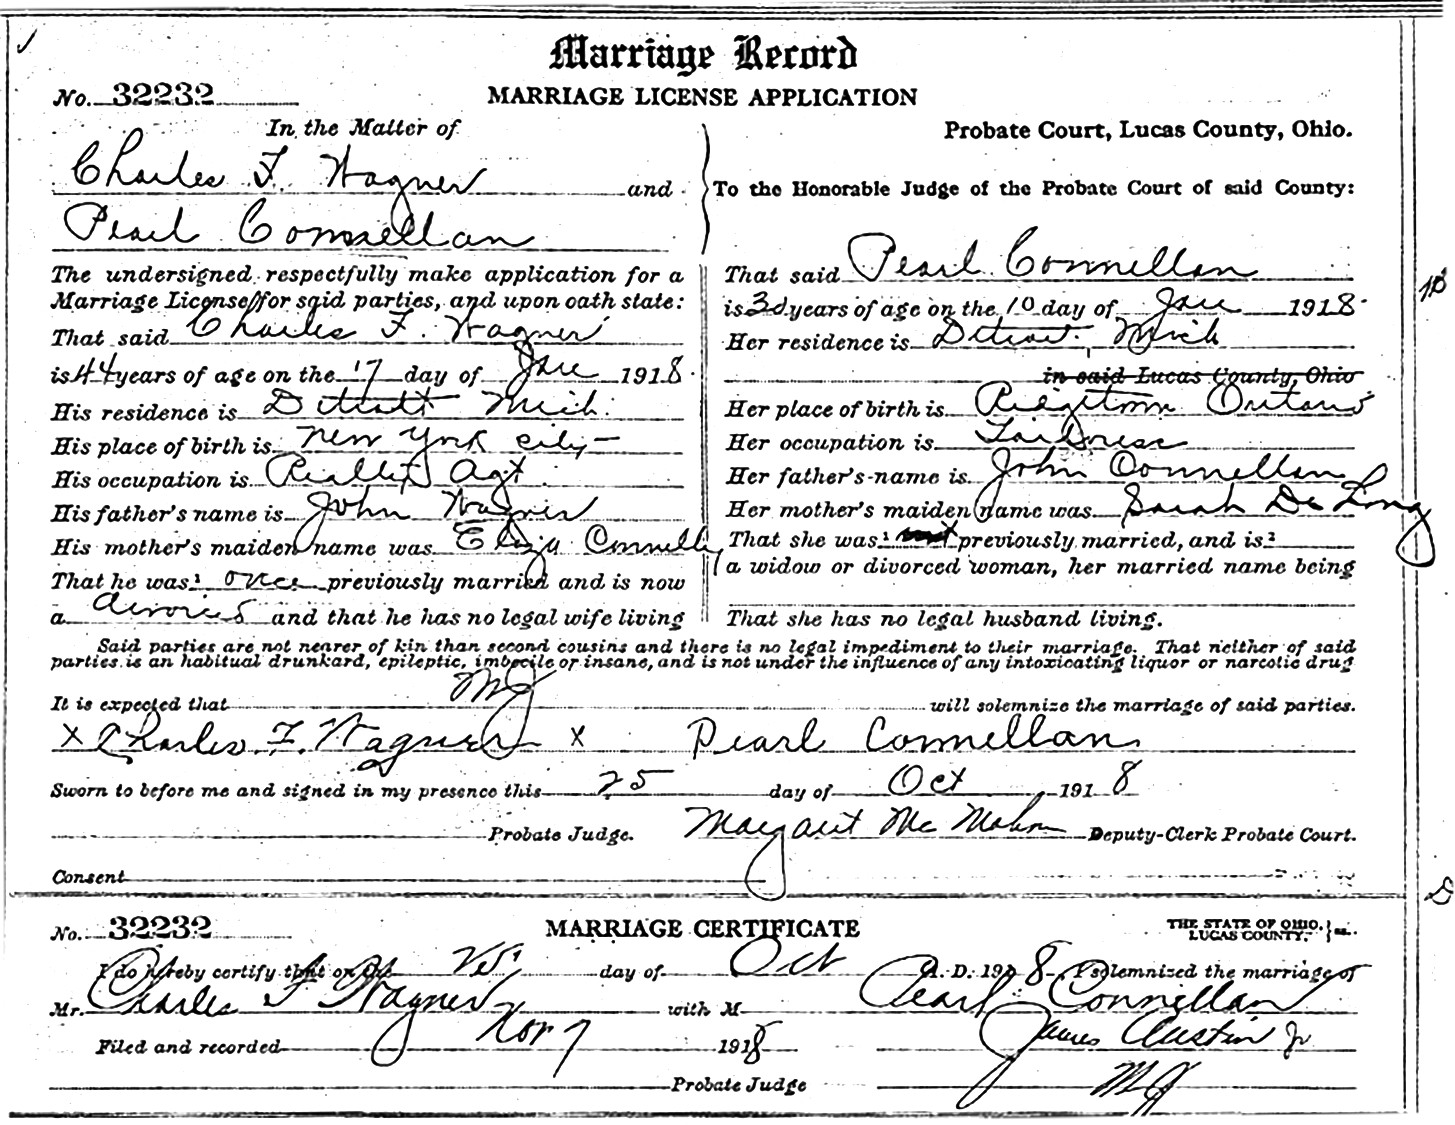 Marriage Record
No. 32232
MARRIAGE LICENSE APPLICATION
In the Matter of
Probate Court, Lucas County, Ohio.
Charles F. Wagner and
To the Honorable Judge of the Probate Court of said County:
Pearl Connellan
The undersigned respectfully make application for a
Marriage License for said parties, and upon oath state:
That said Charles F. Wagner
is 44 years of age on the 17 day of Jan 1918
His residence is Detroit Mich.
His place of birth is New York City
His occupation is Reality Agt
His father's name is John Wagner
His mother's maiden name was Eliza Connelly
That he was¹ once previously married and is now
a divorced and that he has no legal wife living
That said Pearl Connellan
is years of age on the 10 day of Jan 1918
Her residence is Detroit, Mich
in said Lucas County, Ohio
Her place of birth is Ridgetown Ontario
Her occupation is Tailoress
Her father's name is John Connellan
Her mother's maiden name was Sarah De Long
That she was¹ not previously married, and is²
a widow or divorced woman, her married name being
That she has no legal husband living.
Said parties are not nearer of kin than second cousins and there is no legal impediment to their marriage. That neither of said
parties is an habitual drunkard, epileptic, imbecile or insane, and is not under the influence of any intoxicating liquor or narcotic drug
It is expected that MJ will solemnize the marriage of said parties.
X Charles F. Wagner X Pearl Connellan
Sworn to before me and signed in my presence this 25 day of Oct 1918
Probate Judge. Margaret McMahon Deputy-Clerk Probate Court.
Consent
No. 32232
MARRIAGE CERTIFICATE
THE STATE OF OHIO, } ss.
LUCAS COUNTY,
I do hereby certify that on the 25 day of Oct A. D. 1918 I solemnized the marriage of
Mr. Charles F Wagner with M Pearl Connellan
Filed and recorded Nov 7 1918 James Austin Jr
Probate Judge MJ